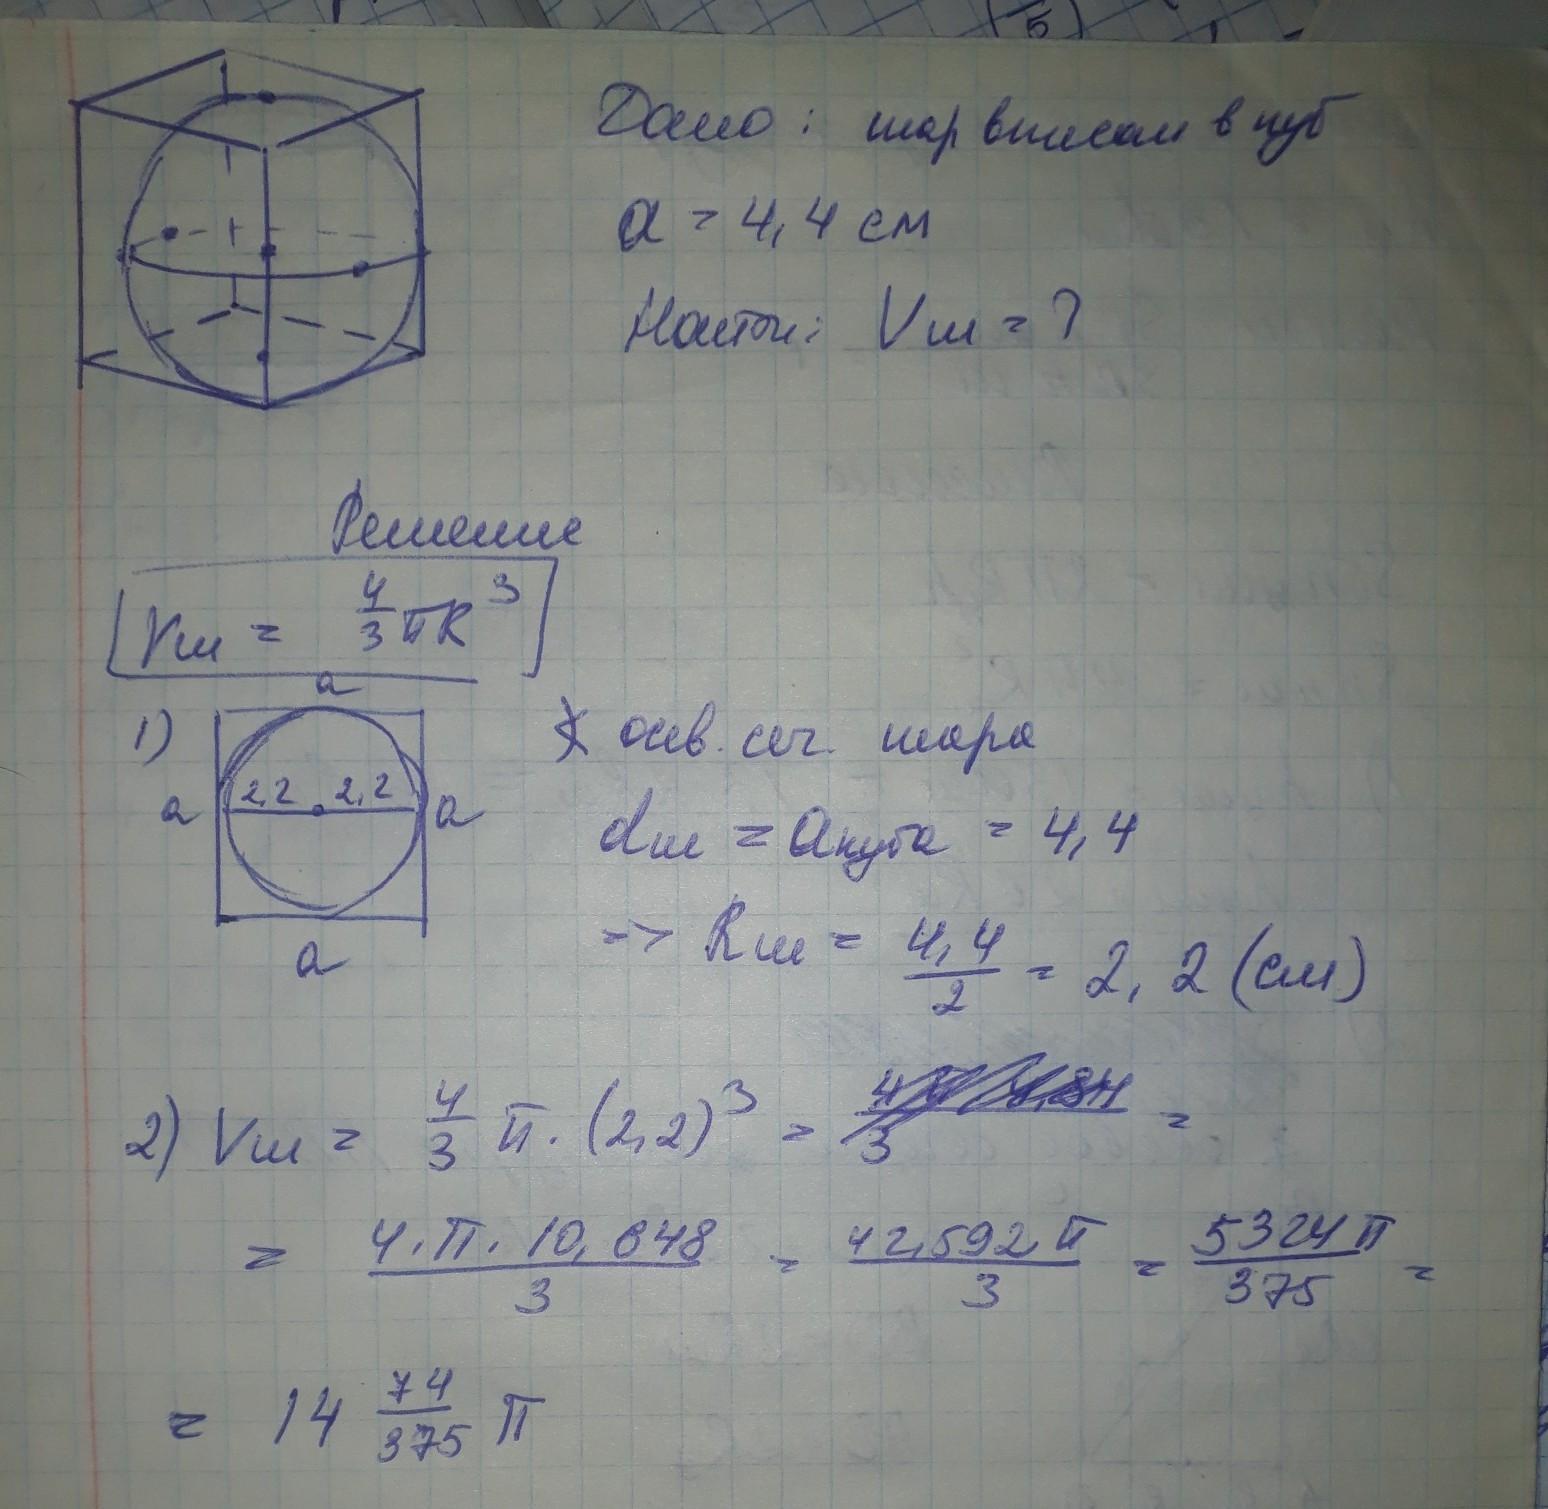 Дано: шар вписан в куб
a = 4,4 см
Найти: Vш = ?
Решение
Vш = 4/3 πR³
1)
a
a
2,2 2,2
a
a
осев. сеч. шара
dш = aкуба = 4,4
=> Rш = 4,4/2 = 2,2 (см)
2) Vш = 4/3 π · (2,2)³ = =
= 4·π·10,648/3 = 42,592π/3 = 5324π/375 =
= 14 74/375 π